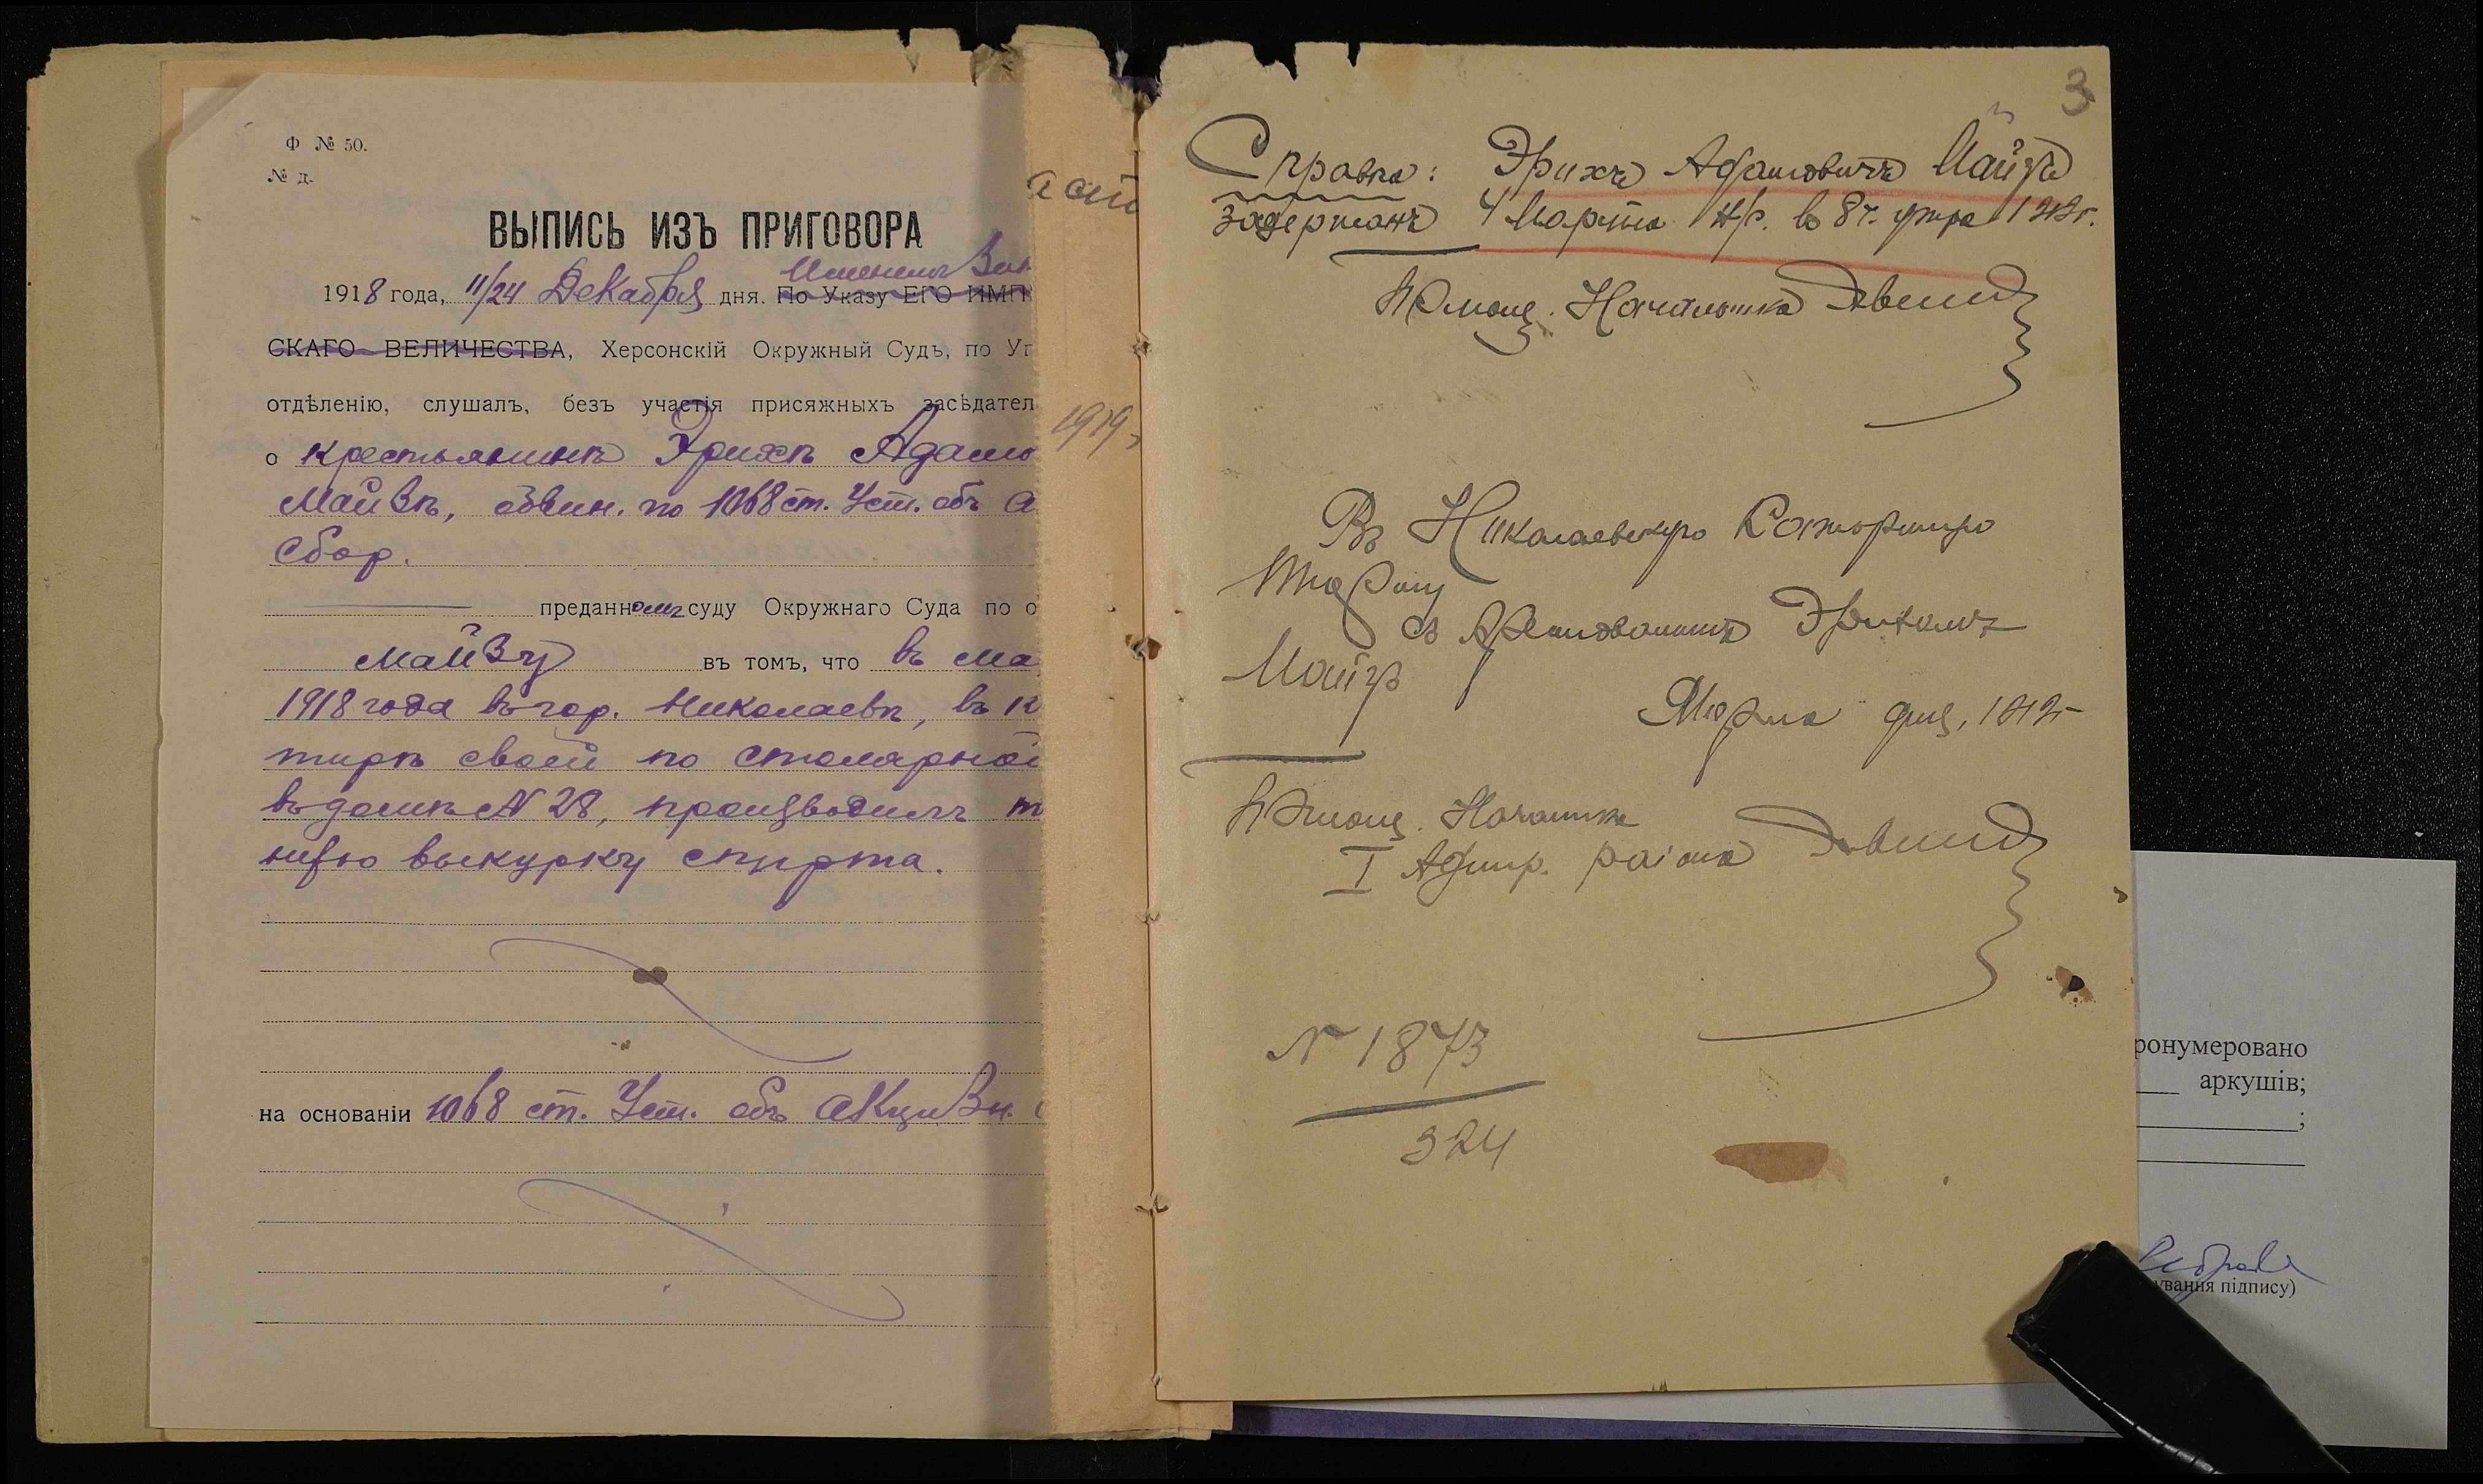 Ф № 50.
№ д.
ВЫПИСЬ ИЗЪ ПРИГОВОРА
Именемъ Зак
1918 года, 11/24 Декабря дня. По Указу ЕГО ИМПЕ
СКАГО ВЕЛИЧЕСТВА, Херсонскій Окружный Судъ, по Уг
отдѣленію, слушалъ, безъ участія присяжныхъ засѣдател
о крестьянинѣ Эрихѣ Адамо
Майзѣ, обвин. по 1068 ст. Уст. объ а
сбор.
преданномъ суду Окружнаго Суда по о
Майзу въ томъ, что въ ма
1918 года въ гор. Николаевѣ, въ к
тирѣ своей по столярной
въ домѣ № 28, производилъ т
ную выкурку спирта.
на основаніи 1068 ст. Уст. объ акцизн.
1919
3
Справка: Эрихъ Адамовичъ Майзъ
задержанъ 4 Марта н/с. в 8 ч. утра 1919г.
Помощ. Начальника
Въ Николаевскую Каторжную
Тюрьму
съ арестованнымъ Эрихомъ
Майзъ
Марта дня, 1919
Помощ. Начальника
I Админ. района
№ 1873
324
ронумеровано
аркушів;
;
ування підпису)